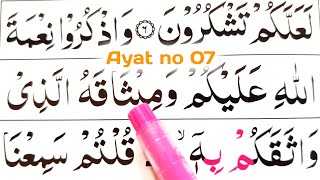 لَعَلَّكُمْ تَشْكُرُوْنَ ﴿٦﴾ وَاذْكُرُوْا نِعْمَةَ
Ayat no 07
اللّٰهِ عَلَيْكُمْ وَمِيْثَاقَهُ الَّذِىْ
وَاثَقَكُمْ بِهٖٓ ۙ قُلْتُمْ سَمِعْنَا